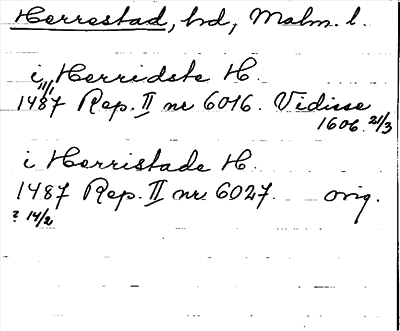 Herrestad, hd, Malm. l.
i Herridste H.
11/1
1487 Rep. II nr 6016. Vidisse
1606 21/3
i Herristade H.
1487 Rep. II nr 6027. orig.
? 14/2